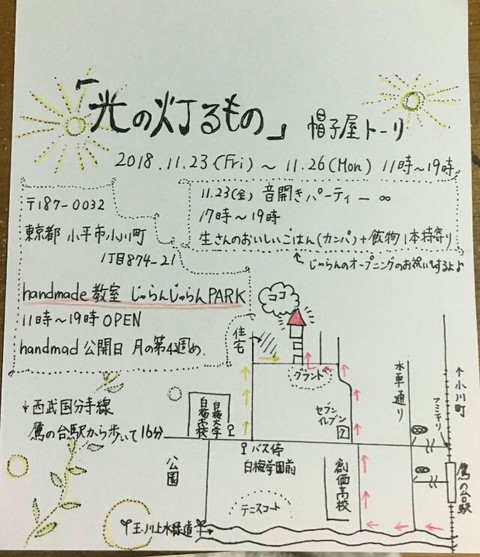 「光の灯るもの」 帽子屋トーリ
2018.11.23(Fri) ～ 11.26(Mon) 11時～19時
〒187-0032
東京都 小平市小川町
1丁目874-21
11.23(金) 音開きパーティー ∞
17時～19時
生さんのおいしいごはん(カンパ)+飲物1本持寄り
↑じゅらんのオープニングのお祝いもするよ
handmade教室 じゅらんじゅらんPARK
11時～19時 OPEN
handmad 公開日 月の第4週め.
↓西武国分寺線
鷹の台駅から歩いて16分
ココ
住宅
グラウンド
セブンイレブン
水車通り
↑小川町
白梅大学
白梅高校
バス停
白梅学園前
創価高校
鷹の台駅
公園
テニスコート
玉川上水緑道